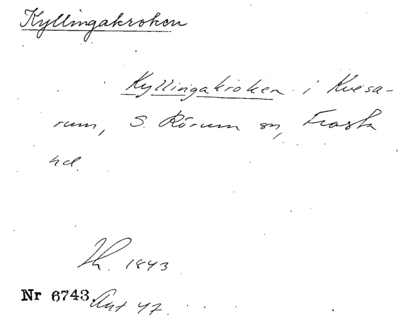 Kyllingakroken
Kyllingakroken i Kvesa-
rum, S. Rörum sn, Frosta
hd.
Th. 1843
Nr 6743 Ant 47.